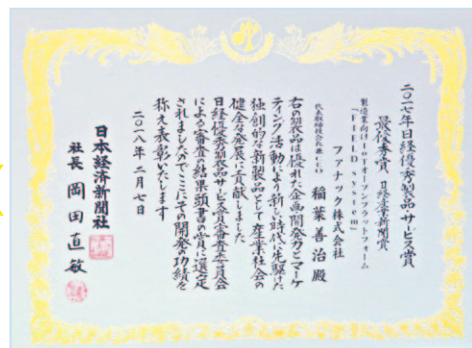 二〇一七年日経優秀製品・サービス賞
最優秀賞 日経産業新聞賞
製造業向けIoTオープンプラットフォーム
「FIELD system」
ファナック株式会社
代表取締役会長兼CEO 稲葉善治殿
右の製品は優れた企画開発力とマーケ
ティング活動により新しい時代に先駆けた
独創的な新製品として産業社会の
健全な発展に貢献しました
日経優秀製品・サービス賞審査委員会
による審査の結果頭書の賞に選定
されましたのでここにその開発功績を
称え表彰いたします
二〇一八年二月七日
日本経済新聞社
社長 岡田直敏